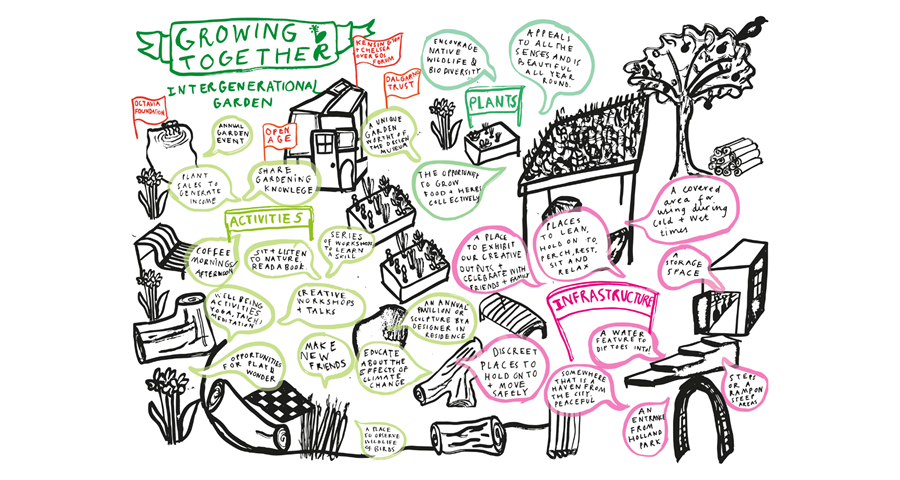 GROWING
TOGETHER
INTERGENERATIONAL
GARDEN
OCTAVIA
FOUNDATION
OPEN
AGE
KENSINGTON
+ CHELSEA
OVER 50S
FORUM
DALGARNO
TRUST
ANNUAL
GARDEN
EVENT
PLANT
SALES TO
GENERATE
INCOME
SHARE
GARDENING
KNOWLEGE
A UNIQUE
GARDEN
WORTHY OF
THE DESIGN
MUSEUM
ACTIVITIES
COFFEE
MORNING/
AFTERNOON
SIT + LISTEN
TO NATURE,
READ A BOOK
SERIES
OF WORKSHOPS
TO LEARN
A SKILL
WELL BEING
ACTIVITIES
YOGA, TAICHI
MEDITATION
CREATIVE
WORKSHOPS
+ TALKS
AN ANNUAL
PAVILION OR
SCULPTURE BY A
DESIGNER IN
RESIDENCE
OPPORTUNITIES
FOR PLAY &
WONDER
MAKE
NEW
FRIENDS
EDUCATE
ABOUT THE
EFFECTS OF
CLIMATE
CHANGE
A PLACE
TO OBSERVE
WILDLIFE
& BIRDS
ENCOURAGE
NATIVE
WILDLIFE &
BIODIVERSITY
APPEALS
TO ALL THE
SENSES AND IS
BEAUTIFUL
ALL YEAR
ROUND.
PLANTS
THE OPPORTUNITY
TO GROW
FOOD + HERBS
COLLECTIVELY
A PLACE
TO EXHIBIT
OUR CREATIVE
OUTPUTS +
CELEBRATE WITH
FRIENDS + FAMILY
PLACES
TO LEAN,
HOLD ON TO,
PERCH, REST,
SIT AND
RELAX
A covered
area for
using during
cold + wet
times
A
STORAGE
SPACE
INFRASTRUCTURE
A WATER
FEATURE TO
DIP TOES INTO!
DISCREET
PLACES TO
HOLD ON TO
+ MOVE
SAFELY
SOMEWHERE
THAT IS A
HAVEN FROM
THE CITY,
PEACEFUL
STEPS
OR A
RAMP ON
STEEP
AREAS
AN
ENTRANCE
FROM
HOLLAND
PARK